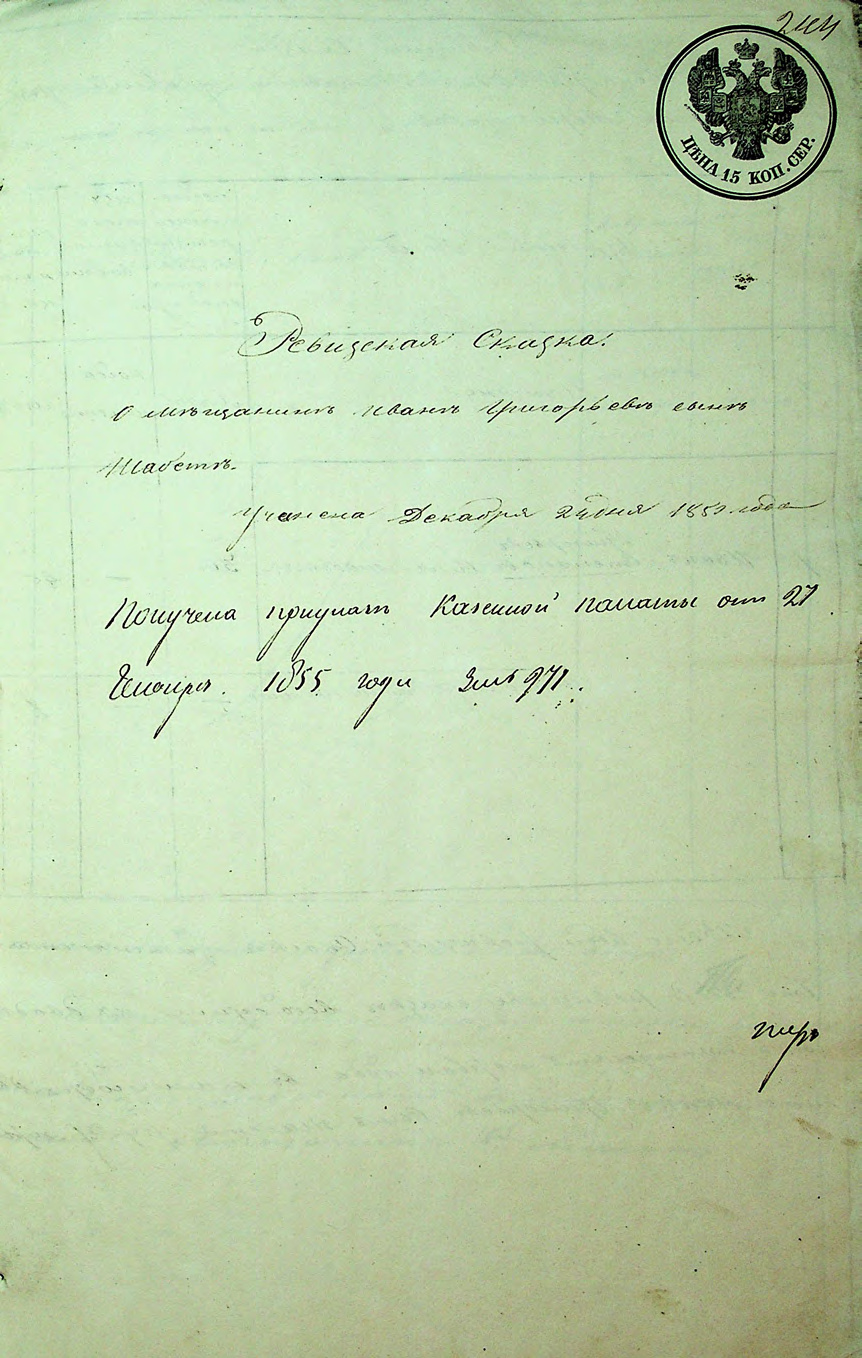 244
ЦѢНА 15 КОП. СЕР.
Ревизская Сказка.
О мѣщанинѣ Иванѣ Григорьевѣ сынѣ
Учинена Декабря дня года
Получена при указѣ Казенной палаты от 27
Генваря 1855 года за № 971.